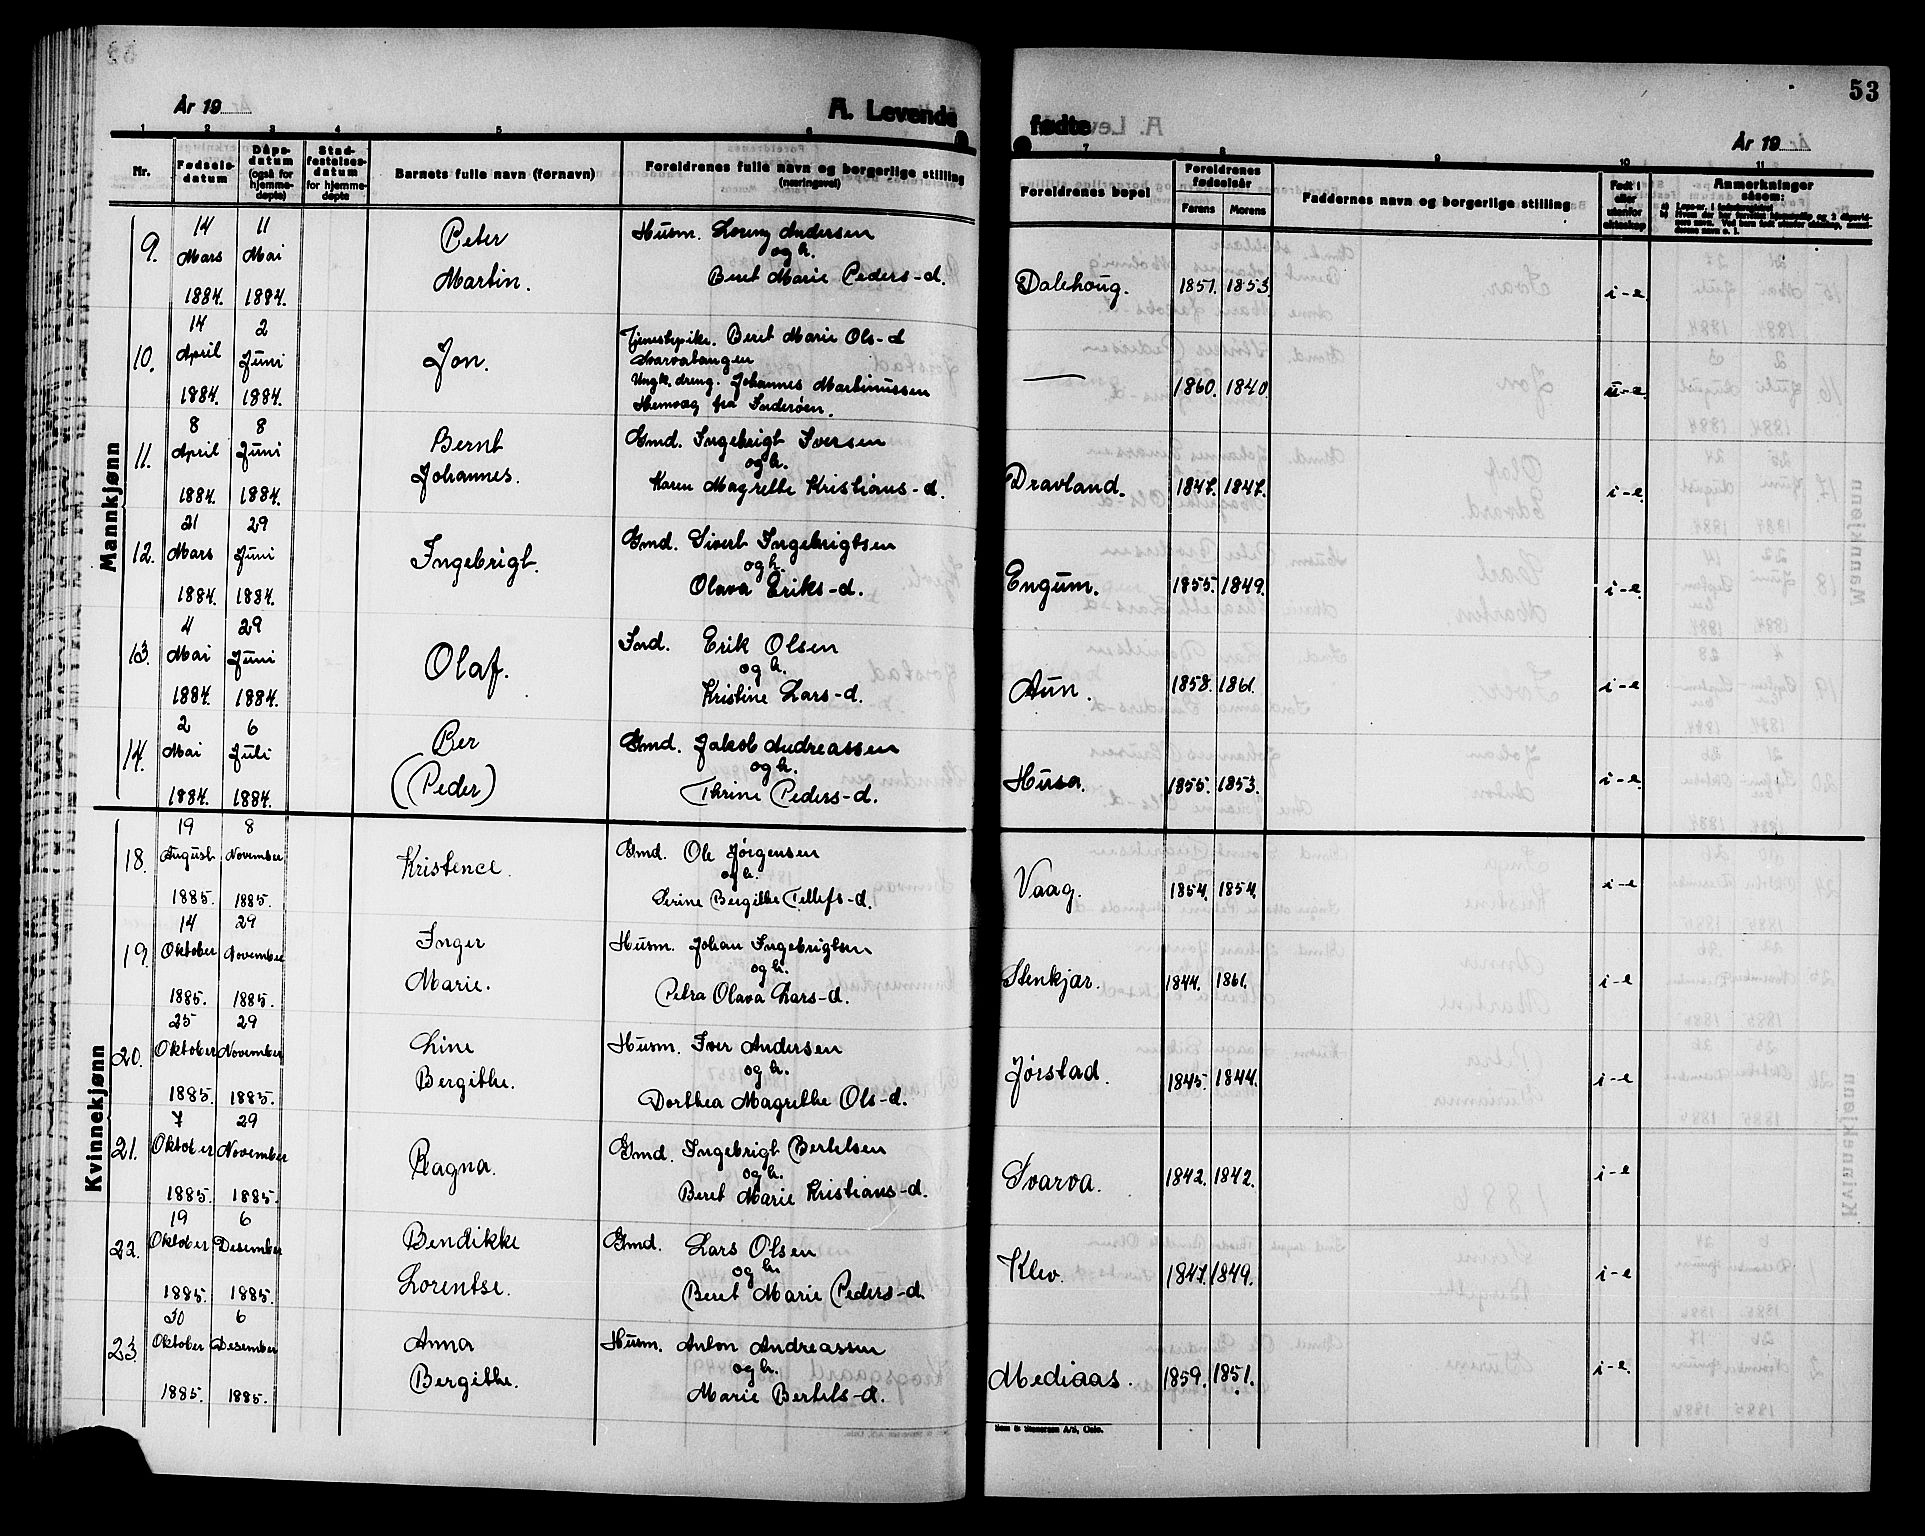 53
År 19
A. Levende
fødte
År 19
1 2 3 4 5 6 7 8 9 10 11
Nr. Fødselsdatum Dåpsdatum (også for hjemmedøpte) Stadfestelsesdatum for hjemmedøpte Barnets fulle navn (førnavn) Foreldrenes fulle navn og borgerlige stilling (næringsvei) Foreldrenes bopel Foreldrenes fødselsår Farens Morens Faddernes navn og borgerlige stilling Født i eller utenfor ekteskap Anmerkninger såsom:
Mannkjønn
9. 14 Mars 1884. 11 Mai 1884. Peter Martin. Husm. Lorenz Andersen og h. Beret Marie Peders-d. Dalehoug. 1851. 1853. i-e
10. 14 April 1884. 2 Juni 1884. Jon. Tjenestepike. Beret Marie Ols-d Svarvatangen Ungk. dreng. Johannes Martinussen Hemvæg fra Inderøen. — 1860. 1840. u-e
11. 8 April 1884. 8 Juni 1884. Bernt Johannes. Gmd. Ingebrigt Iversen og h. Karen Magrethe Kristians-d. Dravland. 1847. 1847. i-e
12. 21 Mars 1884. 29 Juni 1884. Ingebrigt. Gmd. Sivert Ingebrigtsen og h. Olava Eriks-d. Engum. 1855. 1849. i-e
13. 4 Mai 1884. 29 Juni 1884. Olaf. Ind. Erik Olsen og h. Kristine Lars-d. Aun. 1858. 1861. i-e
14. 2 Mai 1884. 6 Juli 1884. Per (Peder) Gmd. Jakob Andreassen og h. Thrine Peders-d. Husa. 1855. 1853. i-e
Kvinnekjønn
18. 19 August 1885. 8 November 1885. Kristence. Gmd. Ole Jørgensen og h. Serine Bergithe Tellefs-d. Vaag. 1854. 1854. i-e
19. 14 Oktober 1885. 29 November 1885. Inger Marie. Husm. Johan Ingebrigtsen og h. Petra Olava Lars-d. Stenkjær. 1844. 1861. i-e
20. 25 Oktober 1885. 29 November 1885. Line Bergithe. Husm. Iver Andersen og h. Dorthea Magrethe Ols-d. Jørstad. 1845. 1844. i-e
21. 7 Oktober 1885. 29 November 1885. Ragna. Gmd. Ingebrigt Bertelsen og h. Beret Marie Kristians-d. Svarva. 1842. 1842. i-e
22. 19 Oktober 1885. 6 Desember 1885. Bendikke Lorentse. Gmd. Lars Olsen og h. Beret Marie Peders-d Klev. 1847. 1849. i-e
23. 30 Oktober 1885. 6 Desember 1885. Anna Bergithe. Husm. Anton Andreassen og h. Marie Bertels-d. Mediaas. 1859. 1851. i-e